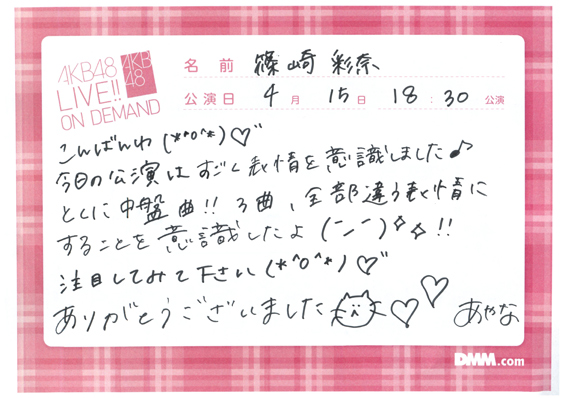 AKB48
LIVE!!
ON DEMAND
AKB
48
名前 篠崎 彩奈
公演日 4月 15日 18:30 公演
こんばんわ(*^o^*)♡
今日の公演はすごく表情を意識しました♪
とくに中盤曲!! 3曲、全部違う表情に
することを意識したよ(ーー)✧✧!!
注目してみて下さい(*^o^*)♡
ありがとうございました♡♡ あやな
DMM.com